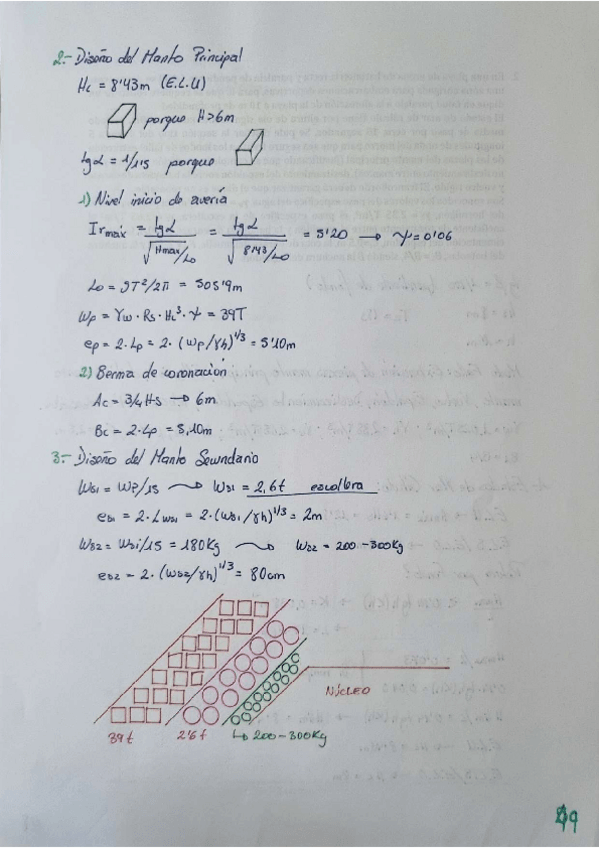 2.- Diseño del Manto Principal
Hc = 8'43m (E.L.U)
porque H>6m
tgα = 1/1'5 porque
1) Nivel inicio de avería
Irmáx = tgα / √(Hmáx/Lo) = tgα / √(8'43/Lo) = 5'20 → Ψ = 0'06
Lo = gT²/2π = 505'9m
Wp = γw · Rs · Hc³ · Ψ = 39T
ep = 2·Lp = 2·(Wp/γh)^1/3 = 5'10m
2) Berma de coronación
Ac = 3/4 Hs → 6m
Bc = 2·Lp = 5,10m
3.- Diseño del Manto Secundario
Ws1 = Wp/15 → Ws1 = 2,6t escollera
es1 = 2·Lws1 = 2·(Ws1/γh)^1/3 = 2m
Ws2 = Ws1/15 = 180Kg → Ws2 = 200-300Kg
es2 = 2·(Ws2/γh)^1/3 = 80cm
NÚCLEO
39t 2'6t ↳ 200-300Kg